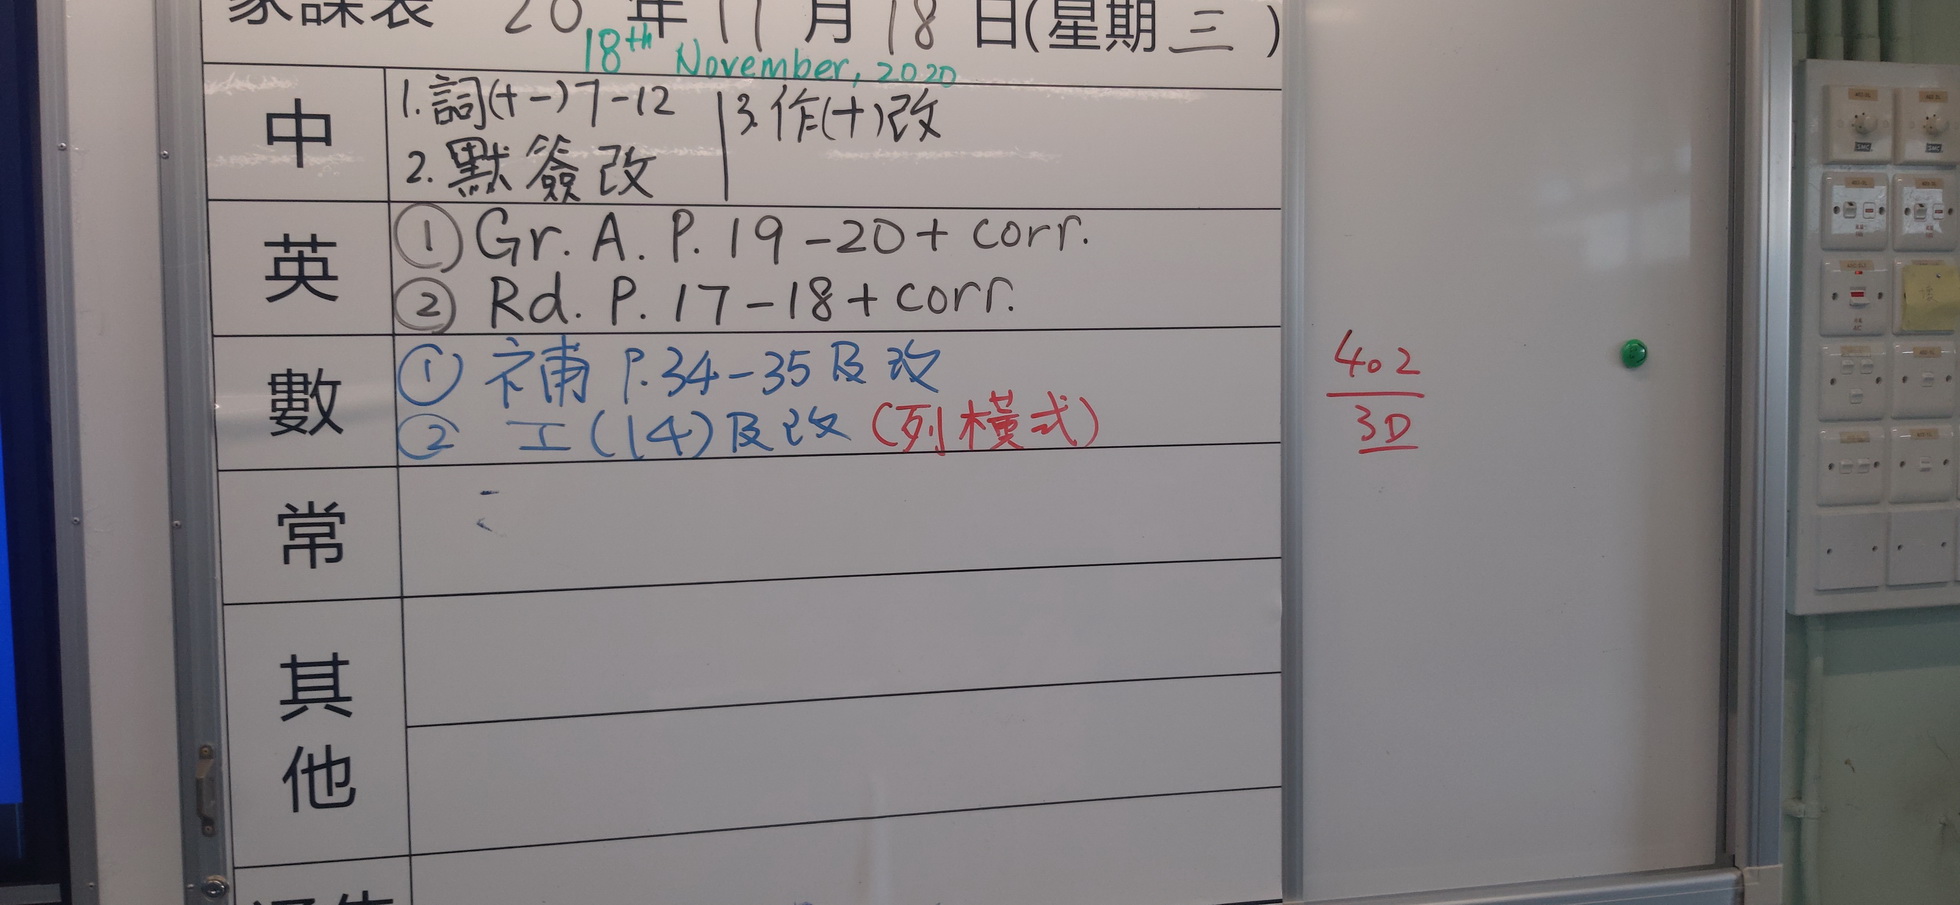 家課表 20 年 11 月 18 日(星期 三 )
18th November, 2020
中
1. 詞(十一)7-12
2. 默簽改
3. 作(十)改
英
① Gr. A. P. 19-20 + corr.
② Rd. P. 17-18 + corr.
數
① 補 P.34-35 及改
② 工(14)及改 (列橫式)
常
其他
402
3D